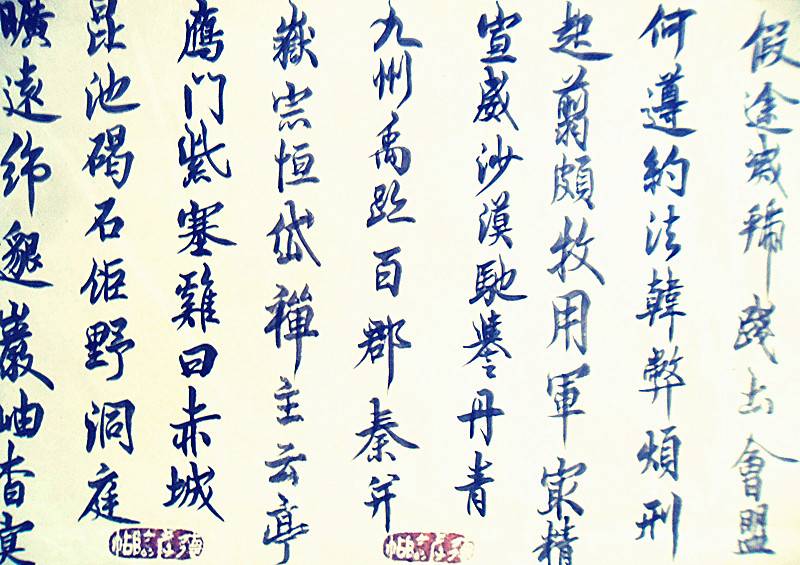 假途滅虢踐土會盟
何遵約法韓弊煩刑
起翦頗牧用軍最精
宣威沙漠馳譽丹青
九州禹跡百郡秦并
嶽宗恒岱禪主云亭
鴈門紫塞雞田赤城
昆池碣石鉅野洞庭
曠遠綿邈巖岫杳冥